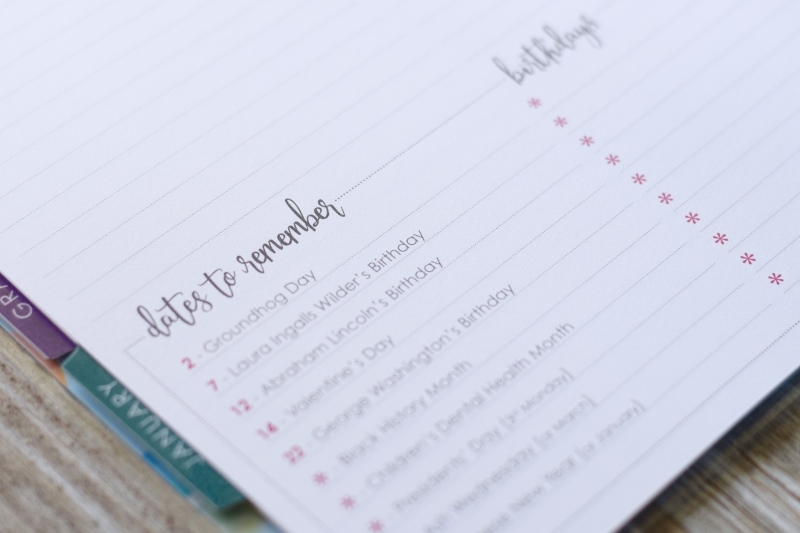 birthdays
*
*
*
*
*
*
*
*
*
*
dates to remember
2 - Groundhog Day
7 - Laura Ingalls Wilder's Birthday
12 - Abraham Lincoln's Birthday
14 - Valentine's Day
22 - George Washington's Birthday
* - Black History Month
* - Children's Dental Health Month
* - Presidents' Day [3rd Monday]
Ash Wednesday [or March]
New Year [or January]
GRA
JANUARY